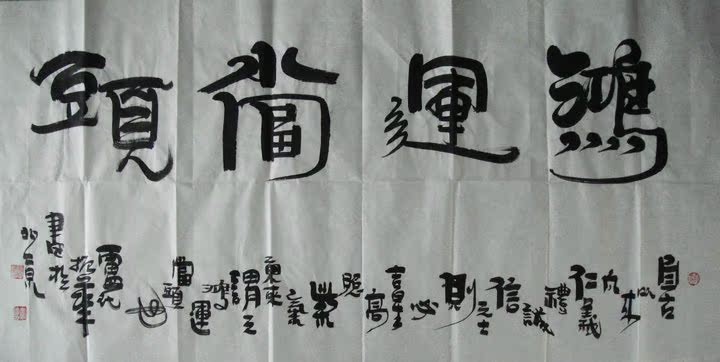 鴻運當頭
自古
以来
凡
仁義
禮
誠
信
之士
則
必
吉星
高
照
紫
氣
東來
謂之
鴻
運
當頭
也
書於